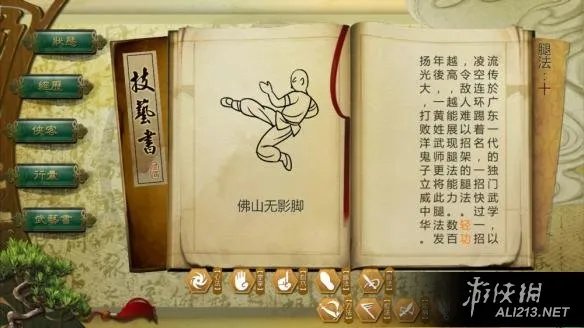 狀態
經歷
俠客
行囊
武藝書
技藝書
佛山无影脚
腿法：十
流传於广东一代的独门武学，以
凌空连环踢着名，一招快过一招
，令敌人难以招架的腿法。轻功
越高，越能展现腿法能力。数百
年後，一黄姓武师更将此腿法发
扬光大，打败洋鬼子立威中华。
游侠網
ALI213.NET